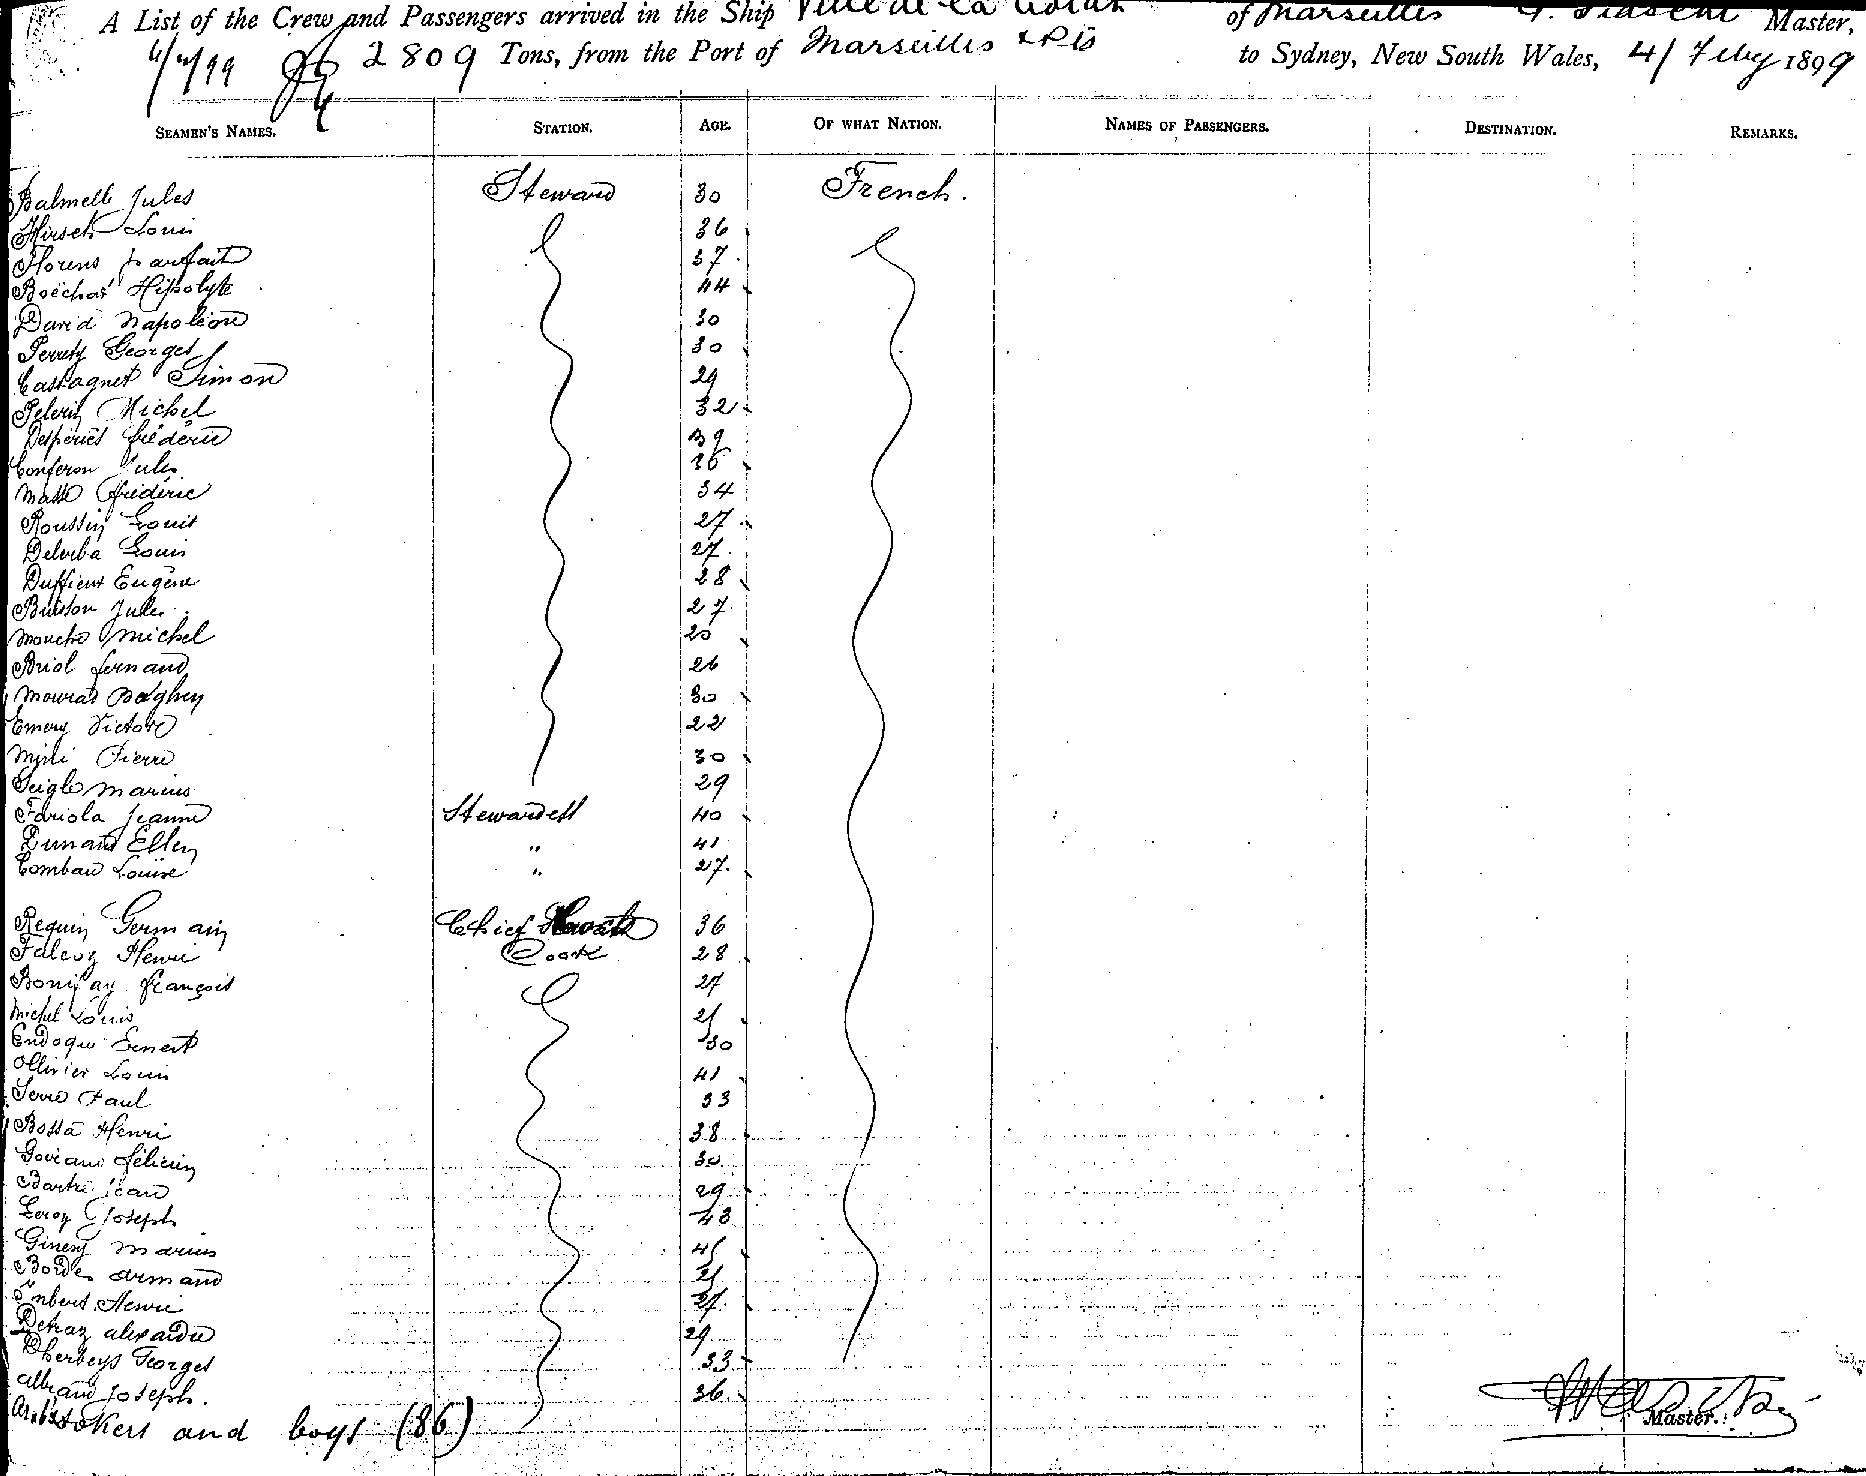 A List of the Crew and Passengers arrived in the Ship Ville de La Ciotat of Marseilles Master,
4/2/99 2809 Tons, from the Port of Marseilles & Pts to Sydney, New South Wales, 4/ Feby 1899
SEAMEN'S NAMES. STATION. AGE. OF WHAT NATION. NAMES OF PASSENGERS. DESTINATION. REMARKS.
Balmelle Jules Steward 30 French.
Hirsch Louis 36
Florens Parfait 37
Boëchat Hipolyte 44
David Napoléon 30
Georges 30
Castagnet Simon 29
Pelerin Michel 32
Frédéric 39
Jules 36
Masse Frédéric 34
Roussin Louis 27
Delorba Louis 27
Duffieux Eugène 28
Buisson Jules 27
Michel 20
Briol Fernand 26
Mourad 30
Emery Victor 22
Pierre 30
Seigle Marius 29
Fariola Jeanne Stewardess 40
Dunand Ellen " 41
Combau Louise " 27
Requin Germain Chief 36
Falcoz Henri Cook 28
Bonifay François 27
Michel Louis 21
Ernest 30
Ollivier Louis 41
Serre Paul 33
Bossa Henri 38
Goviani Félicien 30
Bartre Jean 29
Leroy Joseph 48
Ginesy Marius 45
Bordes Armand 21
Imbert Henri 27
Detraz Alexandre 29
Cherbeys Georges 33
Alleaud Joseph. 36
Arab stokers and boys (86)
Master.